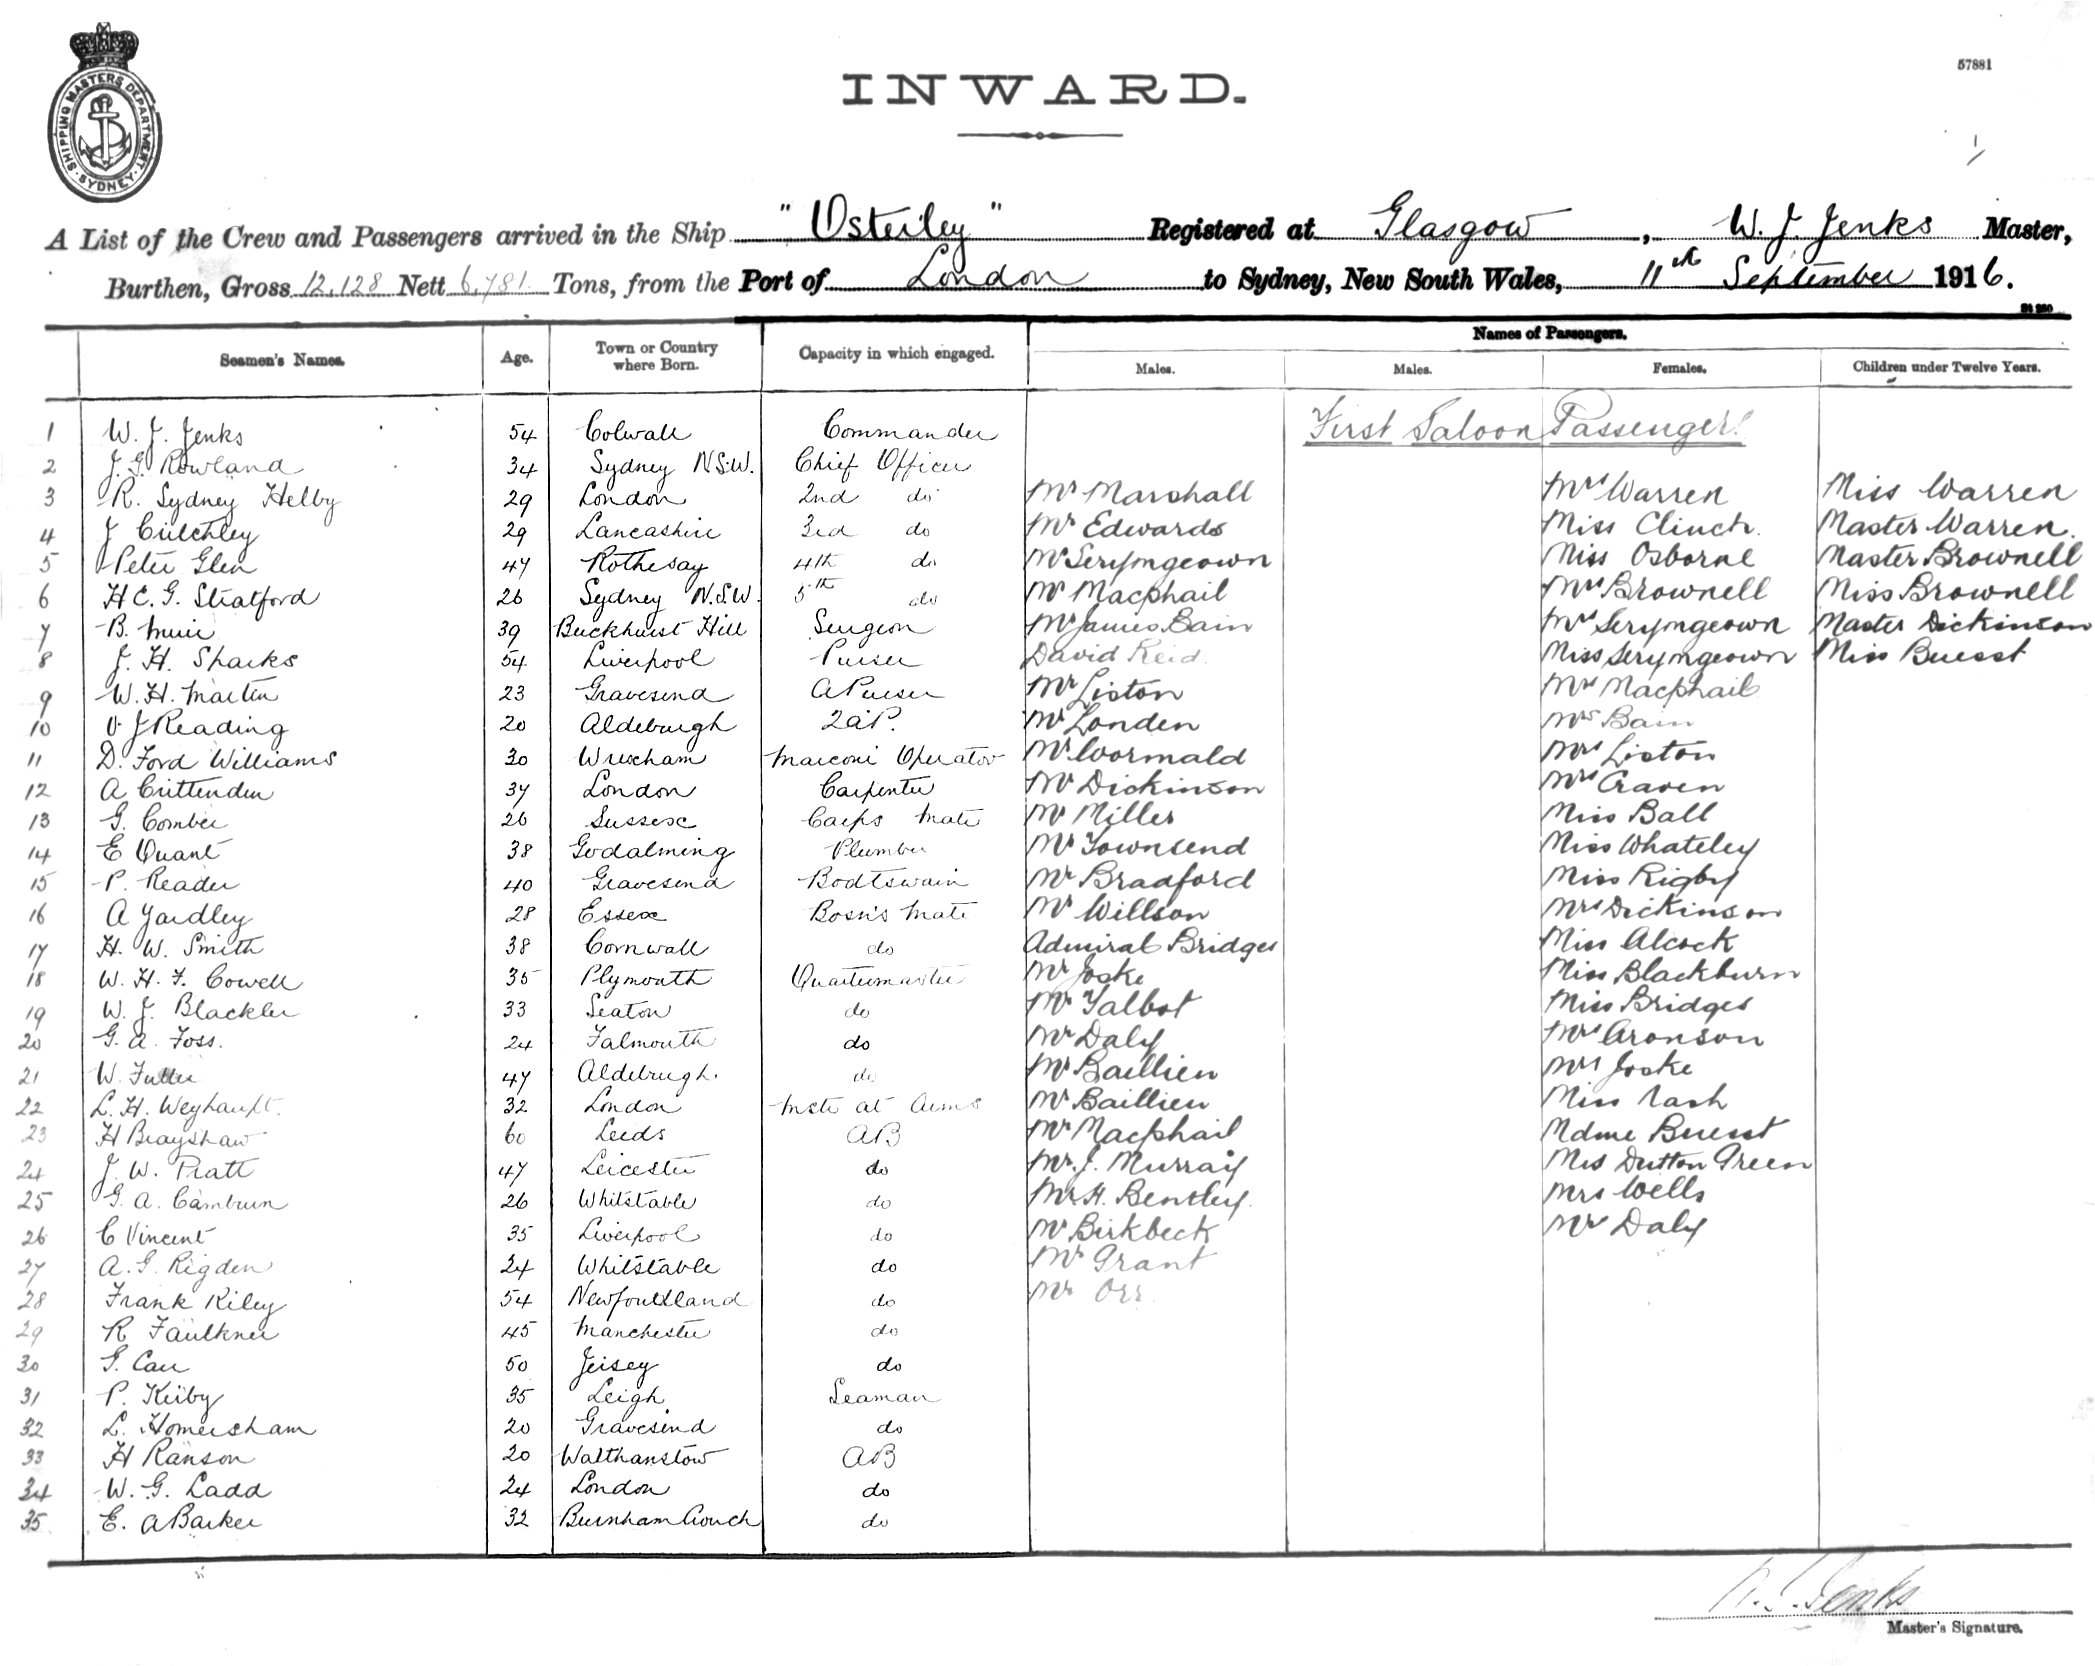 SHIPPING MASTERS DEPARTMENT. SYDNEY.
57881
INWARD.
A List of the Crew and Passengers arrived in the Ship "Osterley" Registered at Glasgow, W. J. Jenks Master,
Burthen, Gross 12,128 Nett 6,781 Tons, from the Port of London to Sydney, New South Wales, 11th September 1916.
Names of Passengers.
Seamen's Names. Age. Town or Country where Born. Capacity in which engaged. Males. Males. Females. Children under Twelve Years.
First Saloon Passengers
1 W. J. Jenks 54 Colwall Commander
2 J. G. Rowland 34 Sydney N.S.W. Chief Officer
3 R. Sydney Helby 29 London 2nd do Mr Marshall Mrs Warren Miss Warren
4 J Critchley 29 Lancashire 3rd do Mr Edwards Miss Clinch. Master Warren.
5 Peter Glen 47 Rothesay 4th do Mr Serymgeown Miss Osborne Master Brownell
6 H C. G. Stratford 26 Sydney N.S.W. 5th do Mr Macphail Mrs Brownell Miss Brownell
7 B. Muir 39 Buckhurst Hill Surgeon Mr James Bain Mrs Serymgeown Master Dickinson
8 J. H. Sparks 54 Liverpool Purser David Reid. Miss Serymgeown Miss Buesst
9 W. H. Martin 23 Gravesend A Purser Mr Liston Mrs Macphail
10 J Reading 20 Aldeburgh 2 a P. Mr Londen Mrs Bain
11 D. Ford Williams 30 Wrexham Marconi Operator Mr Wormald Mrs Liston
12 A Crittenden 37 London Carpenter Mr Dickinson Mrs Craven
13 G. Comber 26 Sussex Carps Mate Mr Miller Miss Ball
14 E Quant 38 Godalming Plumber Mr Townsend Miss Whateley
15 P. Reader 40 Gravesend Boatswain Mr Bradford Miss Rigby
16 A Yardley 28 Essex Bosn's Mate Mr Willson Mrs Dickinson
17 H. W. Smith 38 Cornwall do Admiral Bridges Miss Alcock
18 W. H. F. Cowell 35 Plymouth Quartermaster Mr Joske Miss Blackburn
19 W. J. Blackler 33 Seaton do Mr Talbot Miss Bridges
20 G. A. Foss. 24 Falmouth do Mr Daly Mrs Aronson
21 W. Fuller 47 Aldebrugh. do Mr Baillien Mrs Joske
22 L. H. Weyhauft. 32 London Mstr at Arms Mr Baillien Miss Nash
23 H Brayshaw 60 Leeds AB Mr Macphail Mdme Buesst
24 J. W. Pratt 47 Leicester do Mr. J. Murray Mrs Dutton Green
25 G. A. Camburn 26 Whitstable do Mr H. Bentley. Mrs Wells
26 C Vincent 35 Liverpool do Mr Birkbeck Mrs Daly
27 A. G. Rigden 24 Whitstable do Mr Grant
28 Frank Riley 54 Newfoundland do Mr Orr.
29 R Faulkner 45 Manchester do
30 G. Carr 50 Jersey do
31 P. Kirby 35 Leigh Seaman
32 L. Homersham 20 Gravesend do
33 H Ranson 20 Walthanstow AB
34 W. G. Ladd 24 London do
35 E. A Barker 32 Burnham Crouch do
W. J. Jenks
Master's Signature.